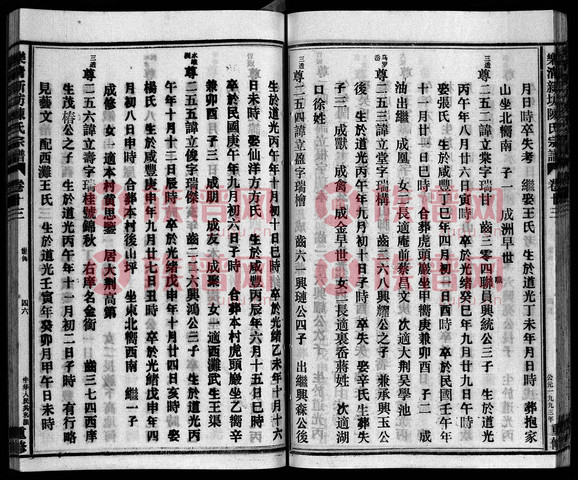 樂清新坊陳氏宗譜 卷十三
月日時卒失考 繼娶王氏 生於道光丁未年月日時 葬抱家
山坐北嚮南 子一 成洲早世
尊二五二諱立棠字瑞山 齒三〇四聯員興統公三子 生於道光
丙午年十二月廿六日寅時 卒於光緒癸巳年九月廿九日午時
娶張氏 生於咸豐 年 月 日 時 卒於民國壬午年
十一月廿一日巳時 合葬虎頭巖坐甲嚮庚兼卯酉 子二 成
油出繼 成凰 女二長適庵前蔡昌文 次適大荆吳學池
尊二五三諱立堂字瑞構 齒三八六三興耀公之子 兼承興玉公
子三 成獻 成禽 成金早世 女二長適裏香蔣姓 次適湖
口徐姓
尊二五四諱立盈字瑞檜 齒六一興漣公四子 出繼興森公後
生於道光丙午年十月初六日 時 卒於光緒乙未年十月十六
日未時 娶仙洋方方氏 生於咸豐丙辰年六月十五日巳時
卒於民國庚午年九月初六日子時 合葬本村虎頭巖坐乙嚮辛
兼卯酉 子三 成朋 成友 成聚 女一適西灘武生王渠
尊二五五諱立俊字瑞傑 齒三二六興鴻公三子 生於道光丙
午年十月十二日辰時 卒於光緒戊申年十月廿四日亥時 娶
楊氏 生於咸豐庚申年九月廿七日丑時 卒於光緒戊申年十
月初八日申時 合葬本村後山坪 坐東北嚮西南 繼一子
成修 女一適本村黃思鑒 居大荆高第
尊二五六諱立壽字瑞桂號錦秋 右庠名金衡 齒三七四西庠
生茂椿公之子 生於道光丙午年十一月初二日子時 有行略
見藝文 配西灘王氏 生於道光壬寅年癸卯月甲午日未時
樂清新坊陳氏宗譜 卷十三
四六
公元一九九三年重修